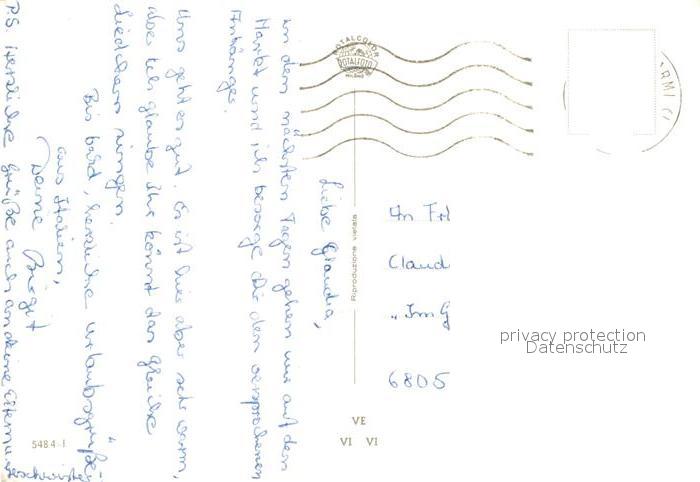 Liebe Claudia,
in den nächsten Tagen gehen wir auf den
Markt und ich besorge dir den versprochenen
Anhänger.
Uns geht es gut. Es ist hier aber sehr warm,
aber ich glaube ihr könnt das gleiche
Liedchen singen.
Bis bald, herzliche Urlaubsgrüße
aus Italien,
Deine Birgit
P.S. Herzliche Grüße auch an deine Eltern u.
An Frl
Claud
"Im G
6805
ROTALCOLOR
ROTALFOTO
MILANO
Riproduzione vietata
privacy protection
Datenschutz
VE
VI VI
5484-I